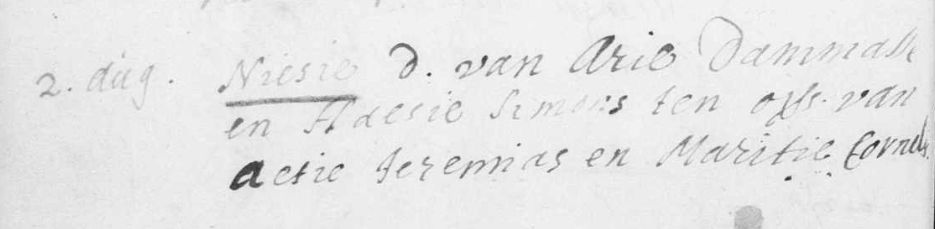 2. aug. Niesie d. van Arie Dammasse
en Haesie Simons ten ofs. van
Aetie Jeremias en Maritie Cornels.